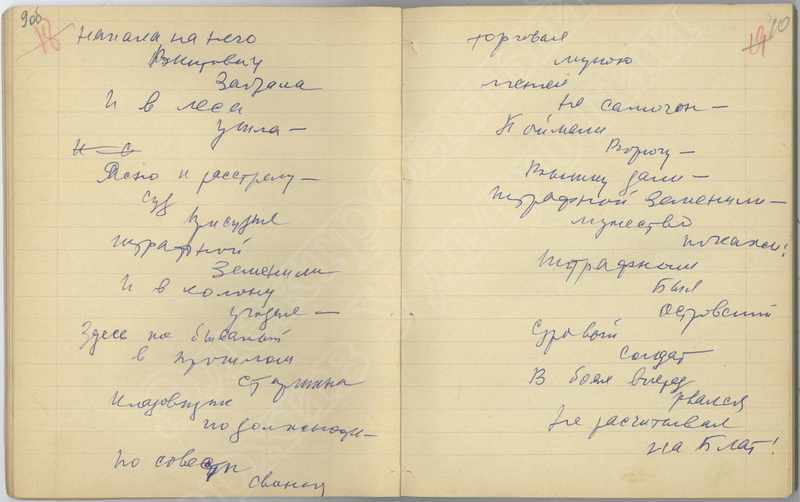 9об
18
напала на него
Забрала
И в леса
ушла —
И — С
Ясно к расстрелу —
Суд
присудил
штрафной
Заменили
И в колону
угодил —
Здесь по бывалый
в прошлом
старшина
Кладовщик
по должности —
по совести
свинец
10
19
торговал
мукою
меняя
на самогон —
Поймали
Ворюгу —
Вышку дали —
Штрафной Заменили —
мужество
покажи!
Штрафником
был
Островский
Суровый
солдат
В боях вперед
рвался
Не расчитывал
на Блат!